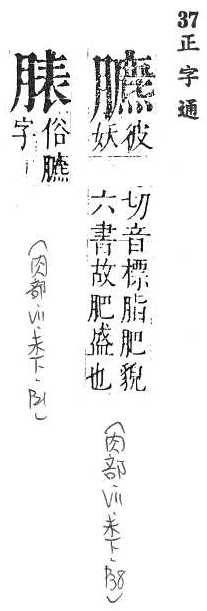 37正字通
臕
彼
妖
切音標脂肥貌
六書故肥盛也
(肉部·VII·未下·P38)
脿
俗臕
字
(肉部·VII·未下·P21)